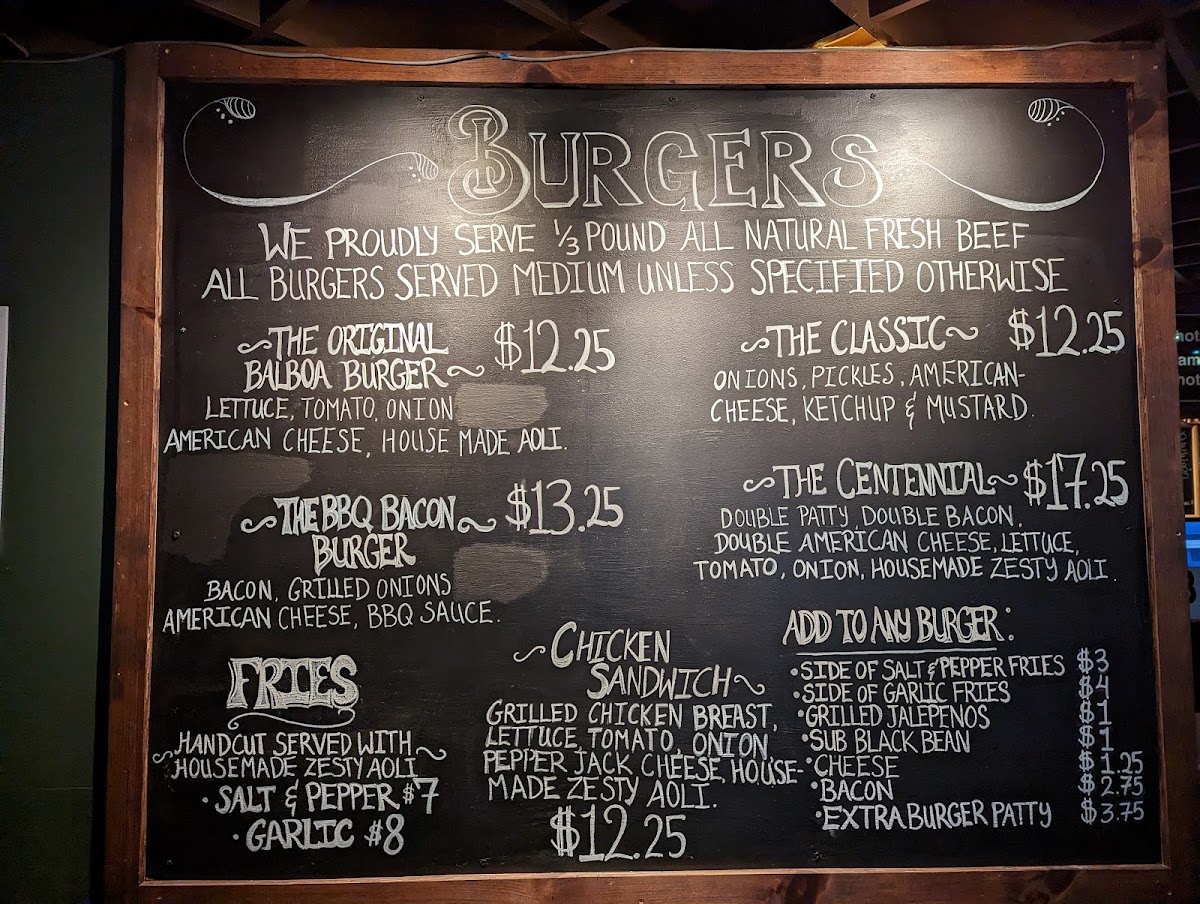 BURGERS
WE PROUDLY SERVE ⅓ POUND ALL NATURAL FRESH BEEF
ALL BURGERS SERVED MEDIUM UNLESS SPECIFIED OTHERWISE
THE ORIGINAL
BALBOA BURGER
$12.25
LETTUCE, TOMATO, ONION
AMERICAN CHEESE, HOUSE MADE AOLI.
THE CLASSIC
$12.25
ONIONS, PICKLES, AMERICAN-
CHEESE, KETCHUP & MUSTARD.
THE BBQ BACON
BURGER
$13.25
BACON, GRILLED ONIONS
AMERICAN CHEESE, BBQ SAUCE.
THE CENTENNIAL
$17.25
DOUBLE PATTY, DOUBLE BACON,
DOUBLE AMERICAN CHEESE, LETTUCE,
TOMATO, ONION, HOUSEMADE ZESTY AOLI.
FRIES
HANDCUT SERVED WITH
HOUSEMADE ZESTY AOLI
• SALT & PEPPER $7
• GARLIC $8
CHICKEN
SANDWICH
GRILLED CHICKEN BREAST,
LETTUCE, TOMATO, ONION
PEPPER JACK CHEESE, HOUSE-
MADE ZESTY AOLI.
$12.25
ADD TO ANY BURGER:
• SIDE OF SALT & PEPPER FRIES $3
• SIDE OF GARLIC FRIES $4
• GRILLED JALEPENOS $1
• SUB BLACK BEAN $1
• CHEESE $1.25
• BACON $2.75
• EXTRA BURGER PATTY $3.75